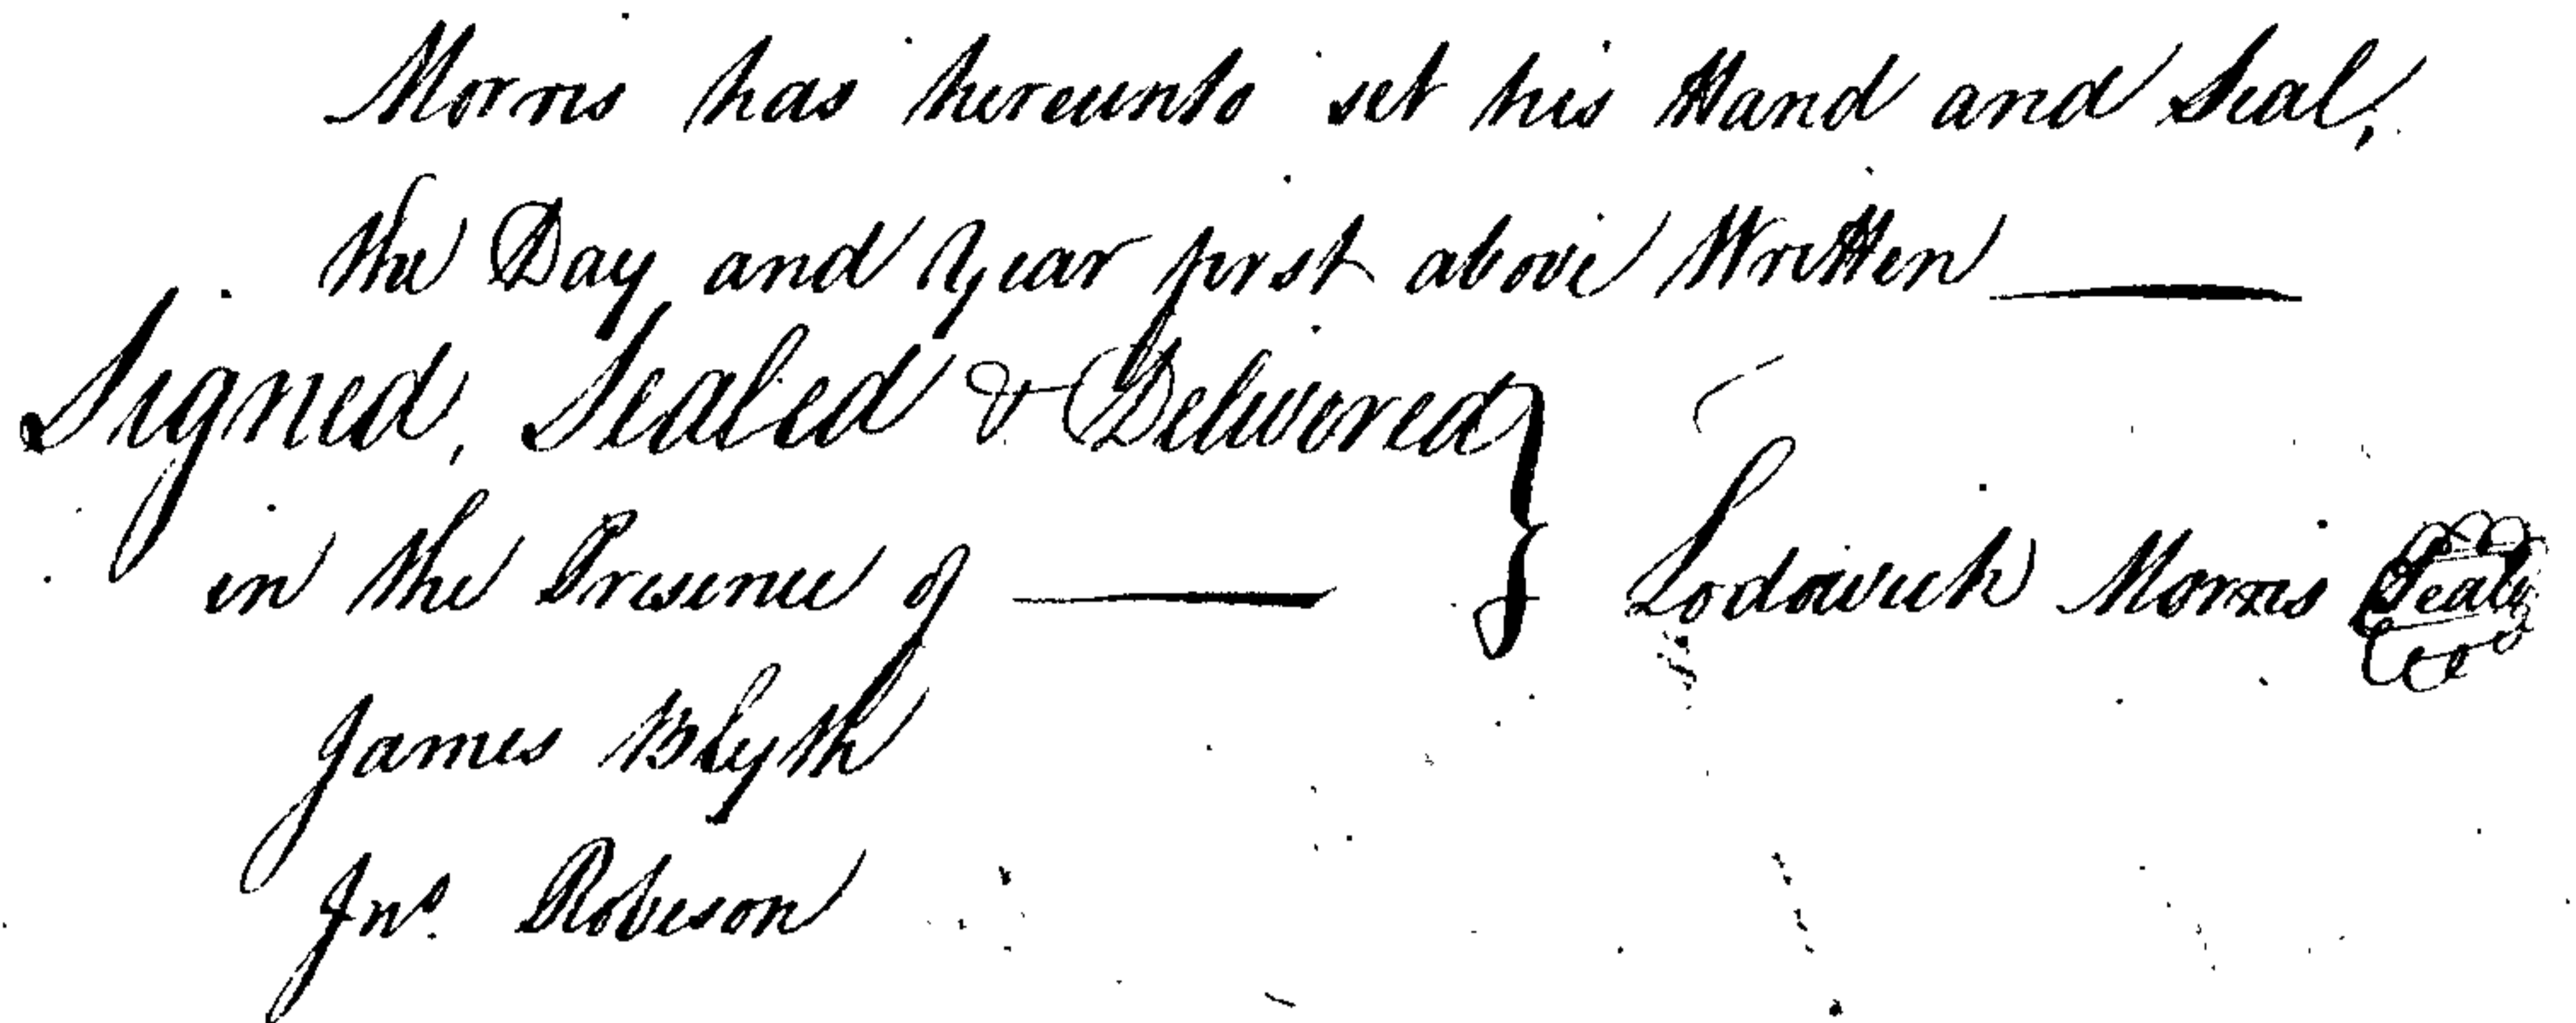 Morris has hereunto set his Hand and Seal,
the Day and Year first above Written
Signed, Sealed & Delivered
in the Presence of
Lodowick Morris Seal
James Blyth
Jno. Robeson